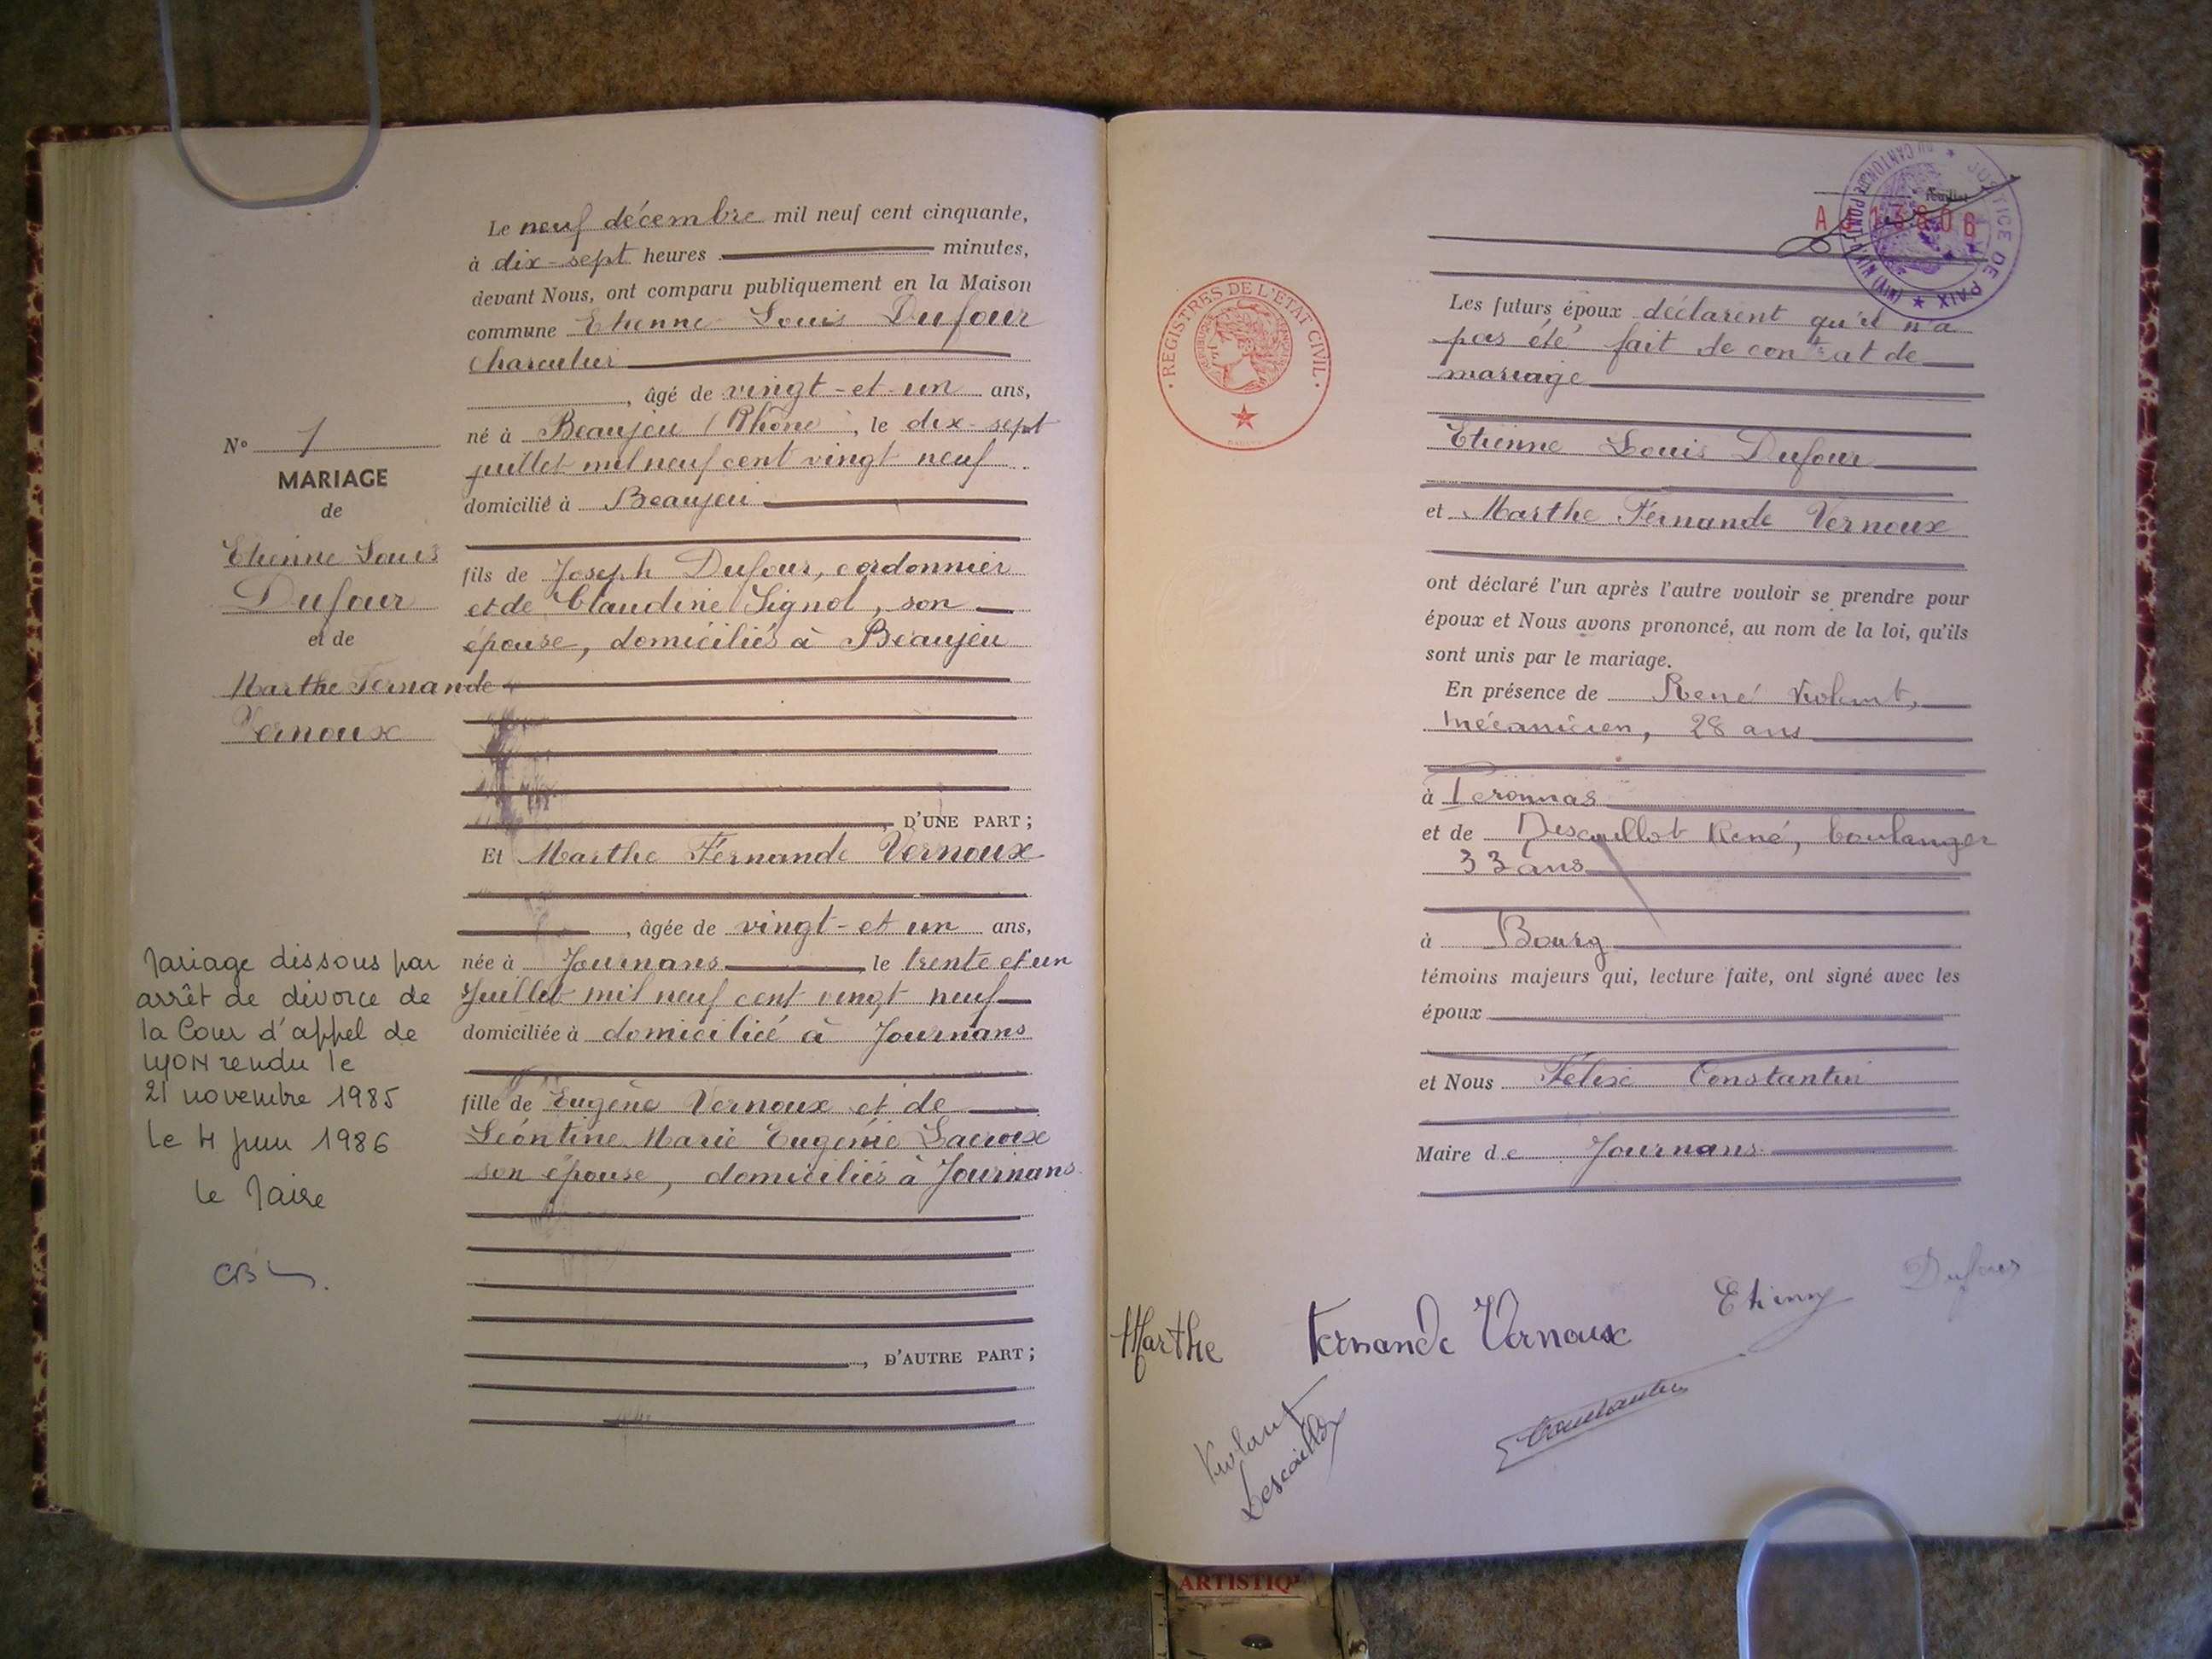 Le neuf décembre mil neuf cent cinquante,
à dix-sept heures minutes,
devant Nous, ont comparu publiquement en la Maison
commune Etienne Louis Dufour
charcutier
, âgé de vingt-et-un ans,
né à Beaujeu (Rhône), le dix-sept
juillet mil neuf cent vingt neuf
domicilié à Beaujeu
fils de Joseph Dufour, cordonnier
et de Claudine Signol, son
épouse, domiciliés à Beaujeu
D'UNE PART;
Et Marthe Fernande Vernoux
, âgée de vingt-et un ans,
née à Journans le trente et un
Juillet mil neuf cent vingt neuf
domiciliée à domicilié à Journans
fille de Eugène Vernoux et de
Léontine Marie Eugénie Lacroix
son épouse, domiciliés à Journans
, D'AUTRE PART;
N° 7
MARIAGE
de
Etienne Louis
Dufour
et de
Marthe Fernande
Vernoux
Mariage dissous par
arrêt de divorce de
la Cour d'appel de
LYON rendu le
21 novembre 1985
Le 4 juin 1986
le Maire
feuillet
JUSTICE DE PAIX ★ DU CANTON DE PONT D'AIN (AIN) ★
REGISTRES DE L'ETAT CIVIL
Les futurs époux déclarent qu'il n'a
pas été fait de contrat de
mariage
Etienne Louis Dufour
et Marthe Fernande Vernoux
ont déclaré l'un après l'autre vouloir se prendre pour
époux et Nous avons prononcé, au nom de la loi, qu'ils
sont unis par le mariage.
En présence de René
mécanicien, 28 ans
à Péronnas
et de Descaillot René, boulanger
33 ans
à Bourg
témoins majeurs qui, lecture faite, ont signé avec les
époux
et Nous Félix Constantin
Maire de Journans
Marthe Fernande Vernoux Etienne Dufour
Descaillot
Constantin
ARTISTIQ